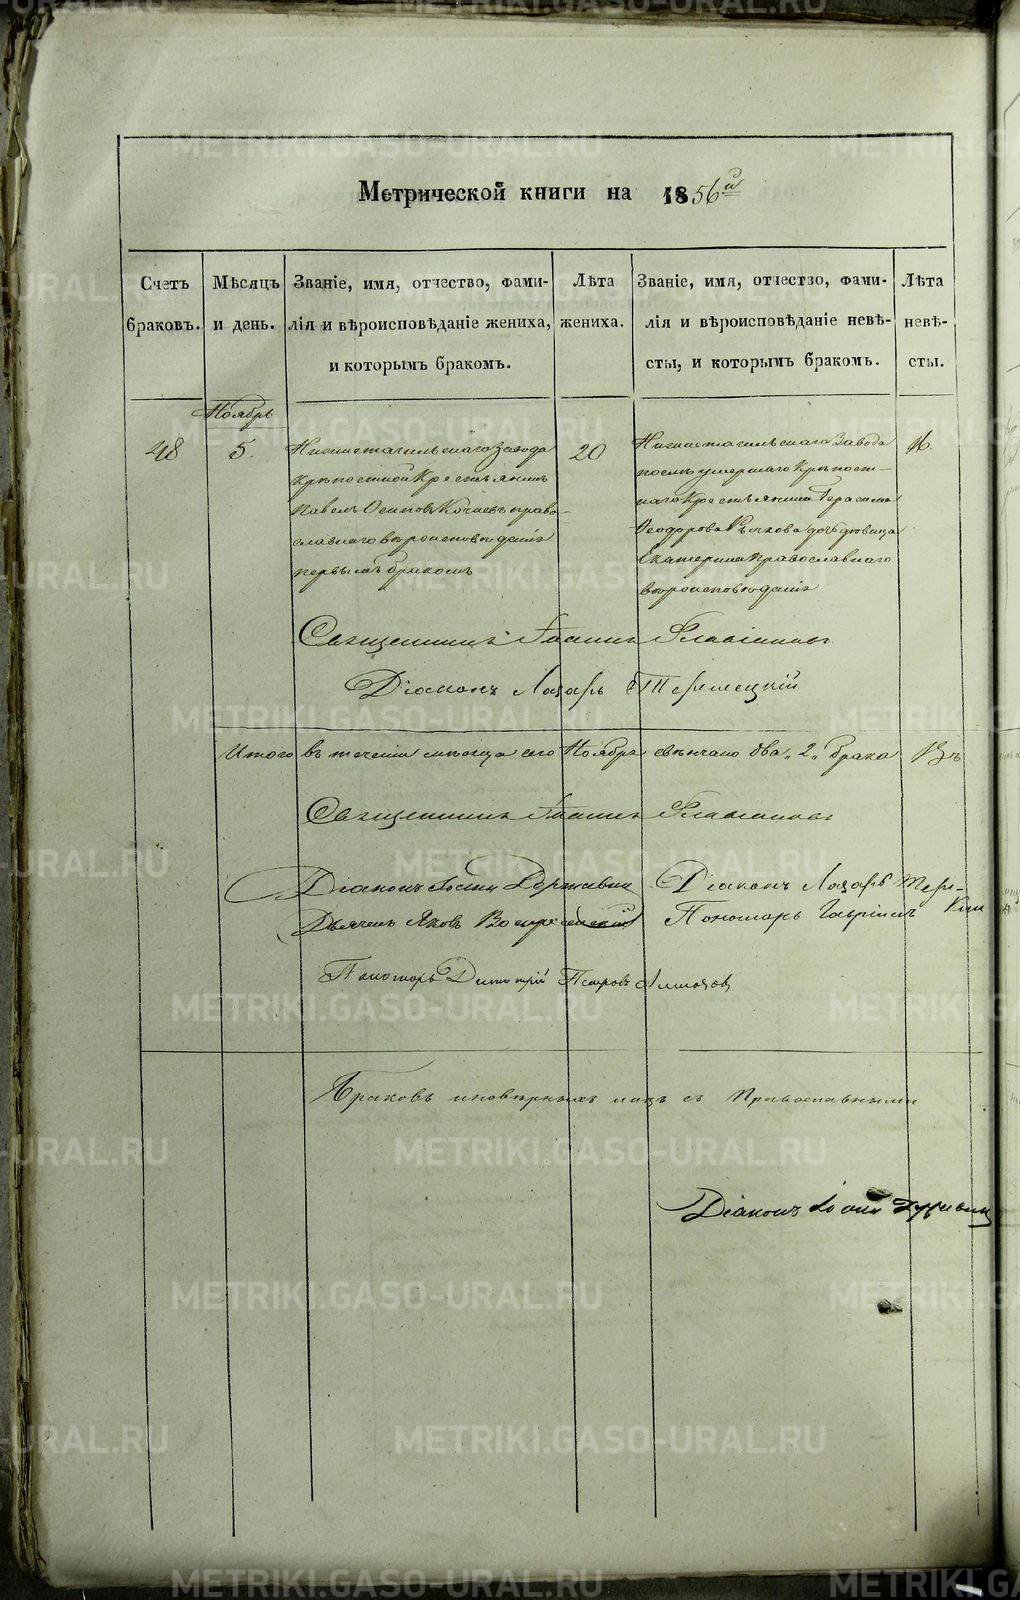 Метрической книги на 1856й
Счетъ браковъ.
Мѣсяцъ и день.
Званіе, имя, отчество, фами-
лія и вѣроисповѣданіе жениха,
и которымъ бракомъ.
Лѣта жениха.
Званіе, имя, отчество, фами-
лія и вѣроисповѣданіе невѣ-
сты, и которымъ бракомъ.
Лѣта невѣ-
сты.
Ноябрь
48
5.
Нижнетагильскаго Завода
крѣпостной Крестьянинъ
Павелъ Осиповъ православнаго
вѣроисповѣданія
первымъ бракомъ
20
Нижнетагильскаго Завода
умершаго Крѣпост-
наго Крестьянина Герасима
Феодорова дочь дѣвица
Екатерина православнаго
вѣроисповѣданія
Священникъ Іоаннъ Флавіановъ
Діаконъ Лазарь
Итого въ теченіи мѣсяца сего Ноября свѣнчано два „2„ брака Въ
Священникъ Іоаннъ Флавіановъ
Діаконъ Державин
Діаконъ Лазарь
Дьячекъ Яковъ
Пономарь Гавріилъ
Пономарь Димитрій Петровъ
Браковъ иновѣрныхъ лицъ съ Православными
Діаконъ
METRIKI.GASO-URAL.RU